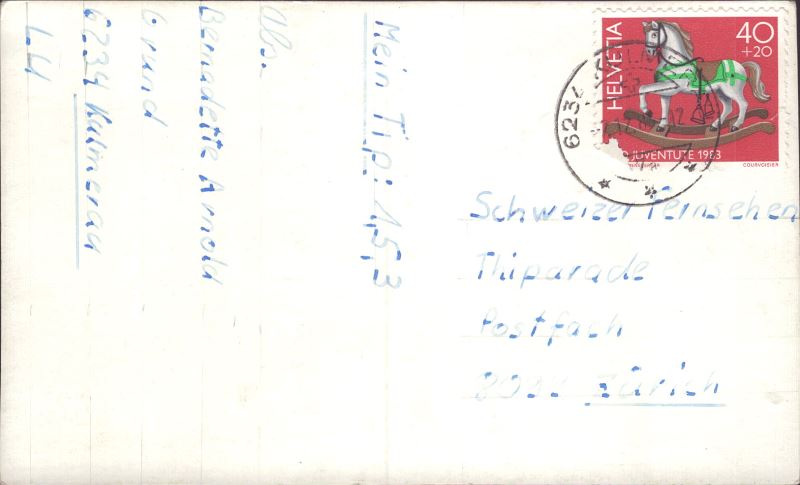 Abs.
Bernadette Arnold
Grund
6234 Kulmerau
LU
Mein Tip: 1,5,3
HELVETIA
40
+20
JUVENTUTE 1983
COURVOISIER
6234
Schweizer Fernsehen
Thiparade
Postfach
Zürich